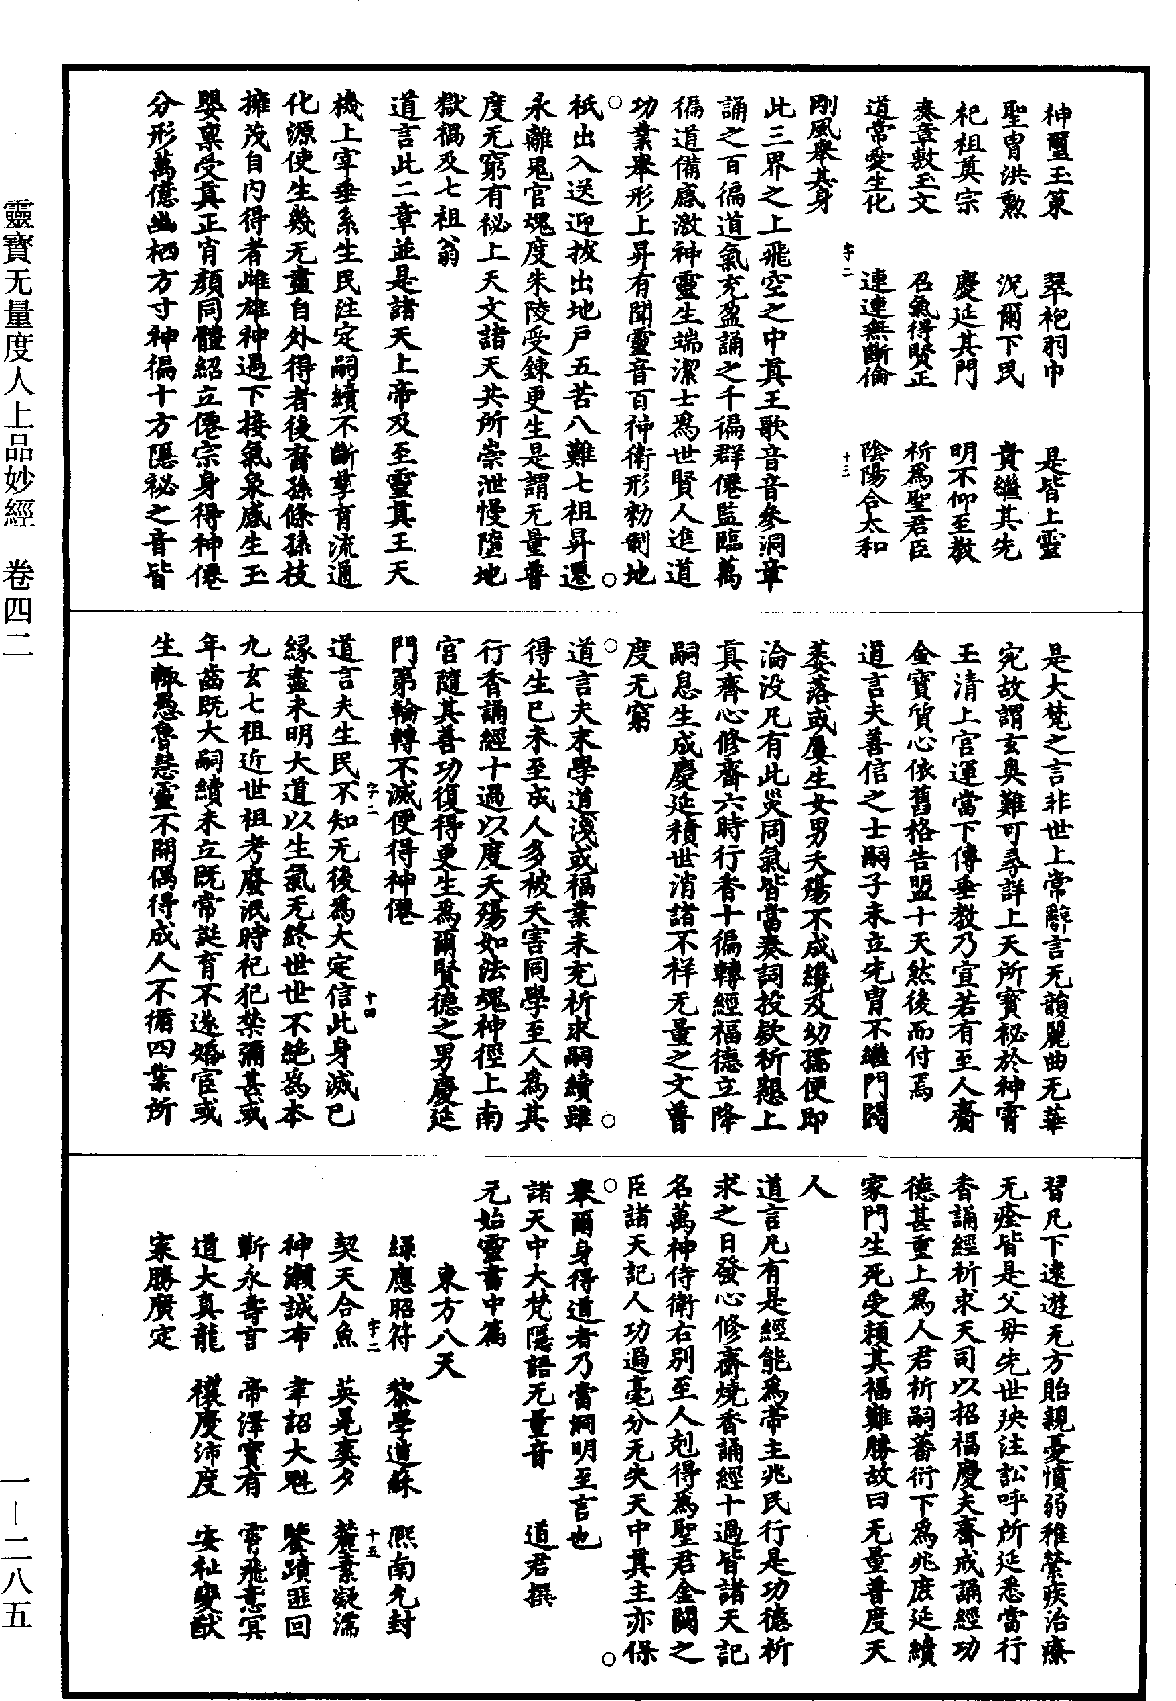 神璽玉策　翠袍羽巾　是皆上靈
聖胄洪勲　況爾下民　貴繼其先
祀祖奠宗　慶延其門　明不仰至教
奏章敷玉文　召氣得賢正　祈為聖君臣
道常愛生化　連連無斷倫　陰陽合太和
剛風舉其身
字二　十三
此三界之上飛空之中真王歌音音參洞章
誦之百徧道氣充盈誦之千徧群僊監臨萬
徧道備感激神靈生端潔士為世賢人進道
功業舉形上昇有聞靈音百神衛形勑制地
祇出入送迎拔出地戶五苦八難七祖昇遷
永離鬼官魂度朱陵受鍊更生是謂无量普
度无窮有秘上天文諸天共所崇泄慢墮地
獄禍及七祖翁
道言此二章並是諸天上帝及至靈真王天
機上宰垂系生民注定嗣續不斷孳育流通
化源使生幾无盡自外得者後裔孫條孫枝
擁茂自內得者雌雄神遇下接氣象感生玉
嬰稟受真正肖顏同體紹立僊宗身得神僊
分形萬億幽栖方寸神徧十方隱祕之音皆
是大梵之言非世上常辭言无韻麗曲无華
宛故謂玄奧難可尋詳上天所寶祕於神霄
玉清上宮運當下傳垂教乃宣若有至人齎
金寶質心依舊格告盟十天然後而付焉
道言夫善信之士嗣子未立先胄不繼門閥
萎落或屢生女男夭殤不成纔及幼孺便即
淪没凡有此災同氣皆當奏詞投欵祈懇上
真齊心修齋六時行香十徧轉經福德立降
嗣息生成慶延積世消諸不祥无量之文普
度无窮
道言夫末學道淺或福業未充祈求嗣續雖
得生已未至成人多被夭害同學至人為其
行香誦經十過以度夭殤如法魂神徑上南
宮隨其善功復得更生為爾賢德之男慶延
門第輪轉不滅便得神僊
字二　十四
道言夫生民不知无後為大定信此身滅已
緣盡未明大道以生氣无終世世不絶為本
九玄七祖近世祖考廢泯時祀犯禁彌甚或
年齒既大嗣續未立既常誕育不遂婚宦或
生輙愚魯慧靈不開偶得成人不循四業所
習凡下遠遊无方貽親憂憤弱稚縈疾治療
无痊皆是父母先世殃注訟呼所延悉當行
香誦經祈求天司以招福慶夫齋戒誦經功
德甚重上為人君祈嗣蕃衍下為兆庶延續
家門生死受賴其福難勝故曰无量普度天
人
道言凡有是經能為帝主兆民行是功德祈
求之日發心修齋燒香誦經十過皆諸天記
名萬神侍衛右別至人剋得為聖君金闕之
臣諸天記人功過毫分无失天中真主亦保
舉爾身得道者乃當洞明至言也
諸天中大梵隱語无量音　道君撰
元始靈書中篇
東方八天
綠應昭符　黎學進蘇　熙南允封
字二　十五
契天合魚　英晃奕夕　麓素凝濡
神瀨誠布　韋詔大魁　鑒蹟匪回
蘄永壽言　帝澤寶有　霄飛憲冥
道大真龍　禳慶沛度　安祉變猷
寀勝廣定
靈寶无量度人上品妙經　卷四二
一—二八五